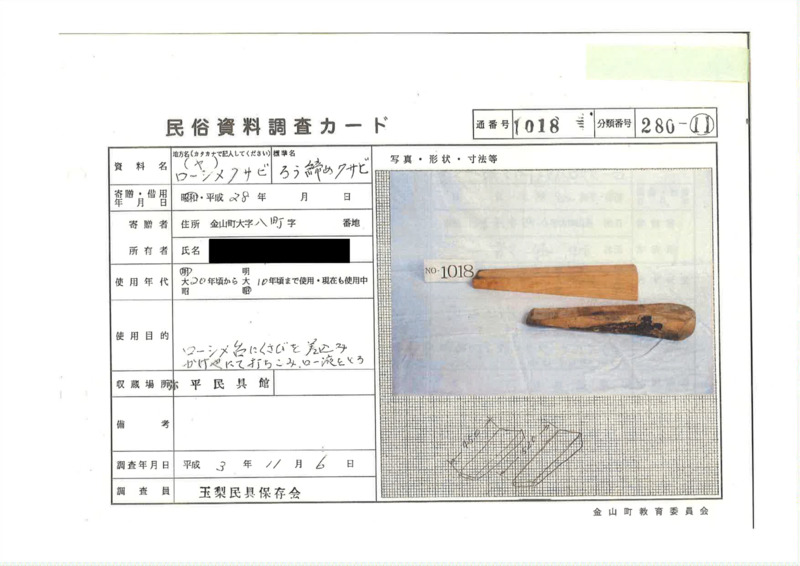 民俗資料調査カード
通番号 1018
分類番号 280-⑪
資料名
地方名(カタカナで記入してください)
(ヤ)
ローシメクサビ
標準名
ろう締めクサビ
寄贈・借用年月日
昭和・平成 28年 月 日
寄贈者
住所 金山町大字八町字 番地
所有者
氏名
使用年代
明大昭 20年頃から 明大昭 10年頃まで使用・現在も使用中
使用目的
ローシメ台にくさびを差込み
かけ矢にて打ちこみ、ロー液をとる
収蔵場所
弥平民具館
備考
調査年月日
平成 3年 11月 6日
調査員
玉梨民具保存会
写真・形状・寸法等
NO-1018
金山町教育委員会